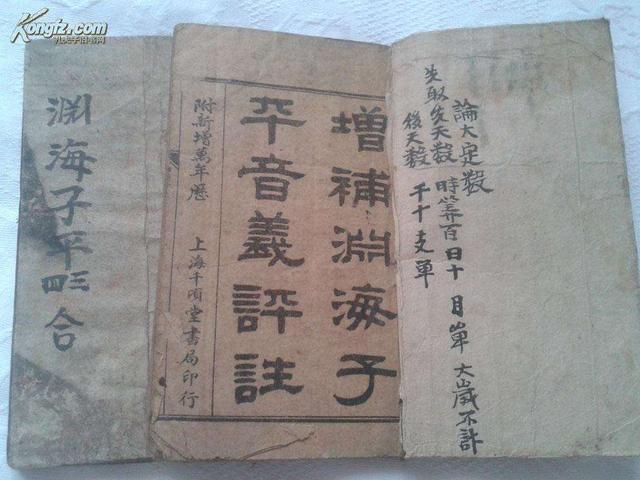 Kongfz.com
孔夫子旧书网
論大定數
先取先天數 時算百日十月單 大歲不計
後天數 千十支單
增補淵海子
平音義評註
附新增萬年歷
上海千頃堂書局印行
淵海子平三四合